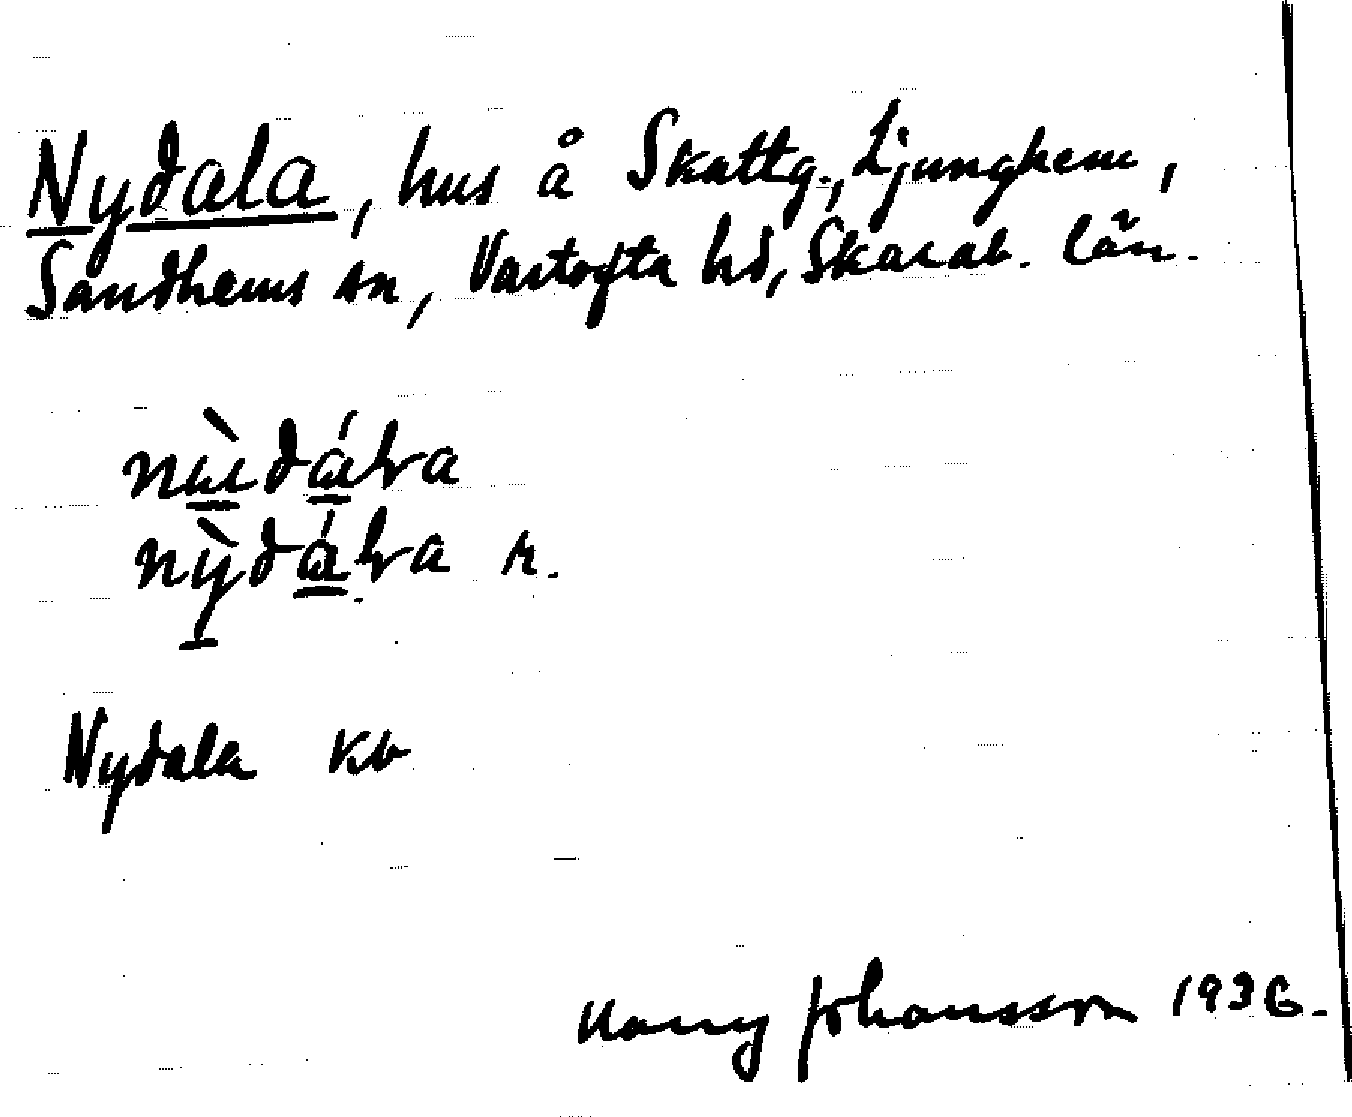 Nydala, hus å Skattg., Ljunghem,
Sandhems sn, Vartofta hd, Skarab. län.
nydala r.
Nydala kb
Harry Johansson 1936.